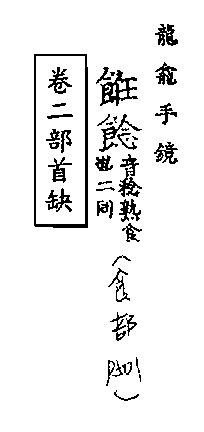 龍龕手鏡
餁音稔熟食也二同（食部）
卷二部首缺